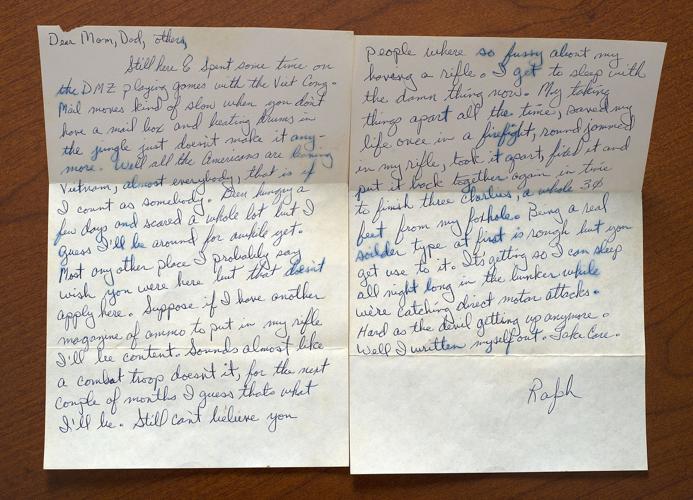 Dear Mom, Dad, others,
Still here & spent some time on
the DMZ playing games with the Viet Cong.
Mail moves kind of slow when you don't
have a mail box and beating drums in
the jungle just doesn't make it any-
more. Well all the Americans are leaving
Vietnam, almost everybody, that is if
I count as somebody. Been hungry a
few days and scared a whole lot but I
guess I'll be around for awhile yet.
Most any other place I probably say
wish you were here but that doesn't
apply here. Suppose if I have another
magazine of ammo to put in my rifle
I'll be content. Sounds almost like
a combat troop doesn't it, for the next
couple of months I guess thats what
I'll be. Still can't believe you
people where so fussy about my
having a rifle. I get to sleep with
the damn thing now. My taking
things apart all the time, saved my
life once in a firefight, round jammed
in my rifle, took it apart, fixed it and
put it back together again in time
to finish three charlies, a whole 30
feet from my foxhole. Being a real
soilder type at first is rough but you
get use to it. It's getting so I can sleep
all night long in the bunker while
we're catching direct motar attacks.
Hard as the devil getting up anymore.
Well I written myself out. Take Care.
Ralph